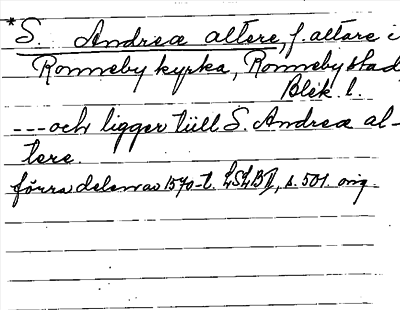 *S. Andreæ altere, f. altare i
Ronneby kyrka, Ronneby stad
Blek. l.
---och ligger tüll S. Andreæ al-
tere
förra delen av 1570-t. LSLB II, s. 501. orig.